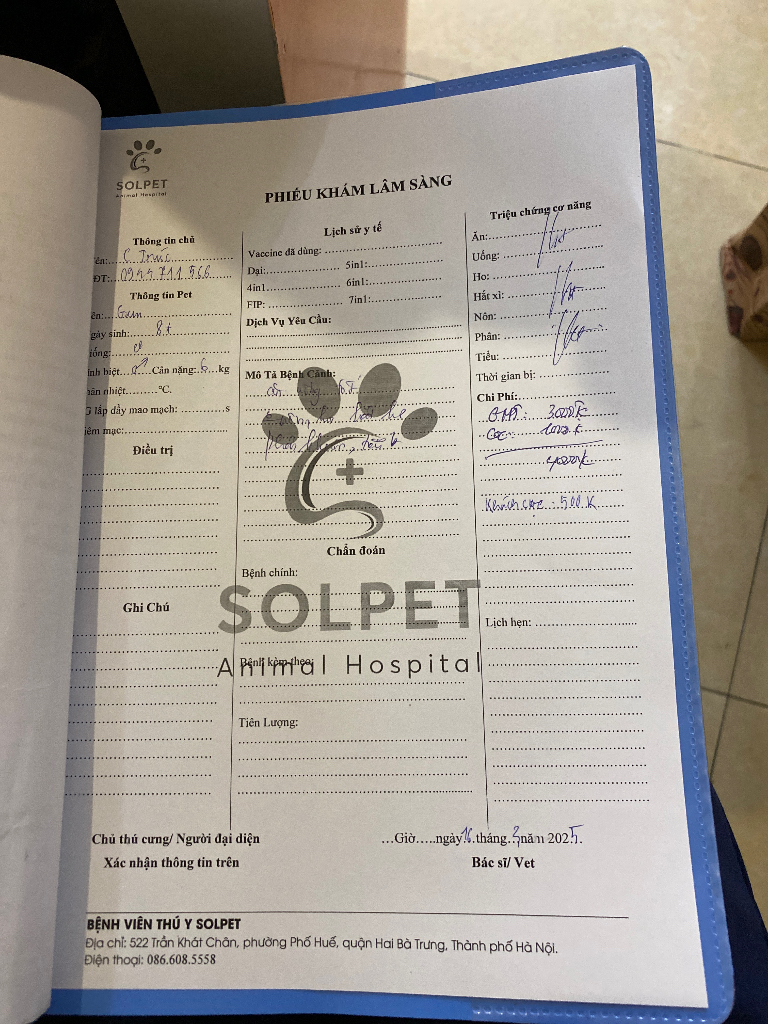 SOLPET
Animal Hospital
PHIẾU KHÁM LÂM SÀNG
Thông tin chủ
ên: C Trúc
ĐT: 0944 711 566
Thông tin Pet
ên: Gum
gày sinh: 8t
iống:
ính biệt ♂ Cân nặng: 6 kg
hân nhiệt °C.
G lấp đầy mao mạch: s
iêm mạc:
Điều trị
Ghi Chú
Lịch sử y tế
Vaccine đã dùng:
Dại: 5in1:
4in1 6in1:
FIP: 7in1:
Dịch Vụ Yêu Cầu:
Mô Tả Bệnh Cảnh:
Chẩn đoán
Bệnh chính:
SOLPET
Animal Hospital
Bệnh kèm theo:
Tiên Lượng:
Triệu chứng cơ năng
Ăn:
Uống:
Ho:
Hắt xì:
Nôn:
Phân:
Tiểu:
Thời gian bị:
Chi Phí:
3000k
1000k
4000k
Khách cọc: 500K
Lịch hẹn:
Chủ thú cưng/ Người đại diện
Xác nhận thông tin trên
...Giờ.....ngày 16 tháng 3 năm 2025.
Bác sĩ/ Vet
BỆNH VIỆN THÚ Y SOLPET
Địa chỉ: 522 Trần Khát Chân, phường Phố Huế, quận Hai Bà Trưng, Thành phố Hà Nội.
Điện thoại: 086.608.5558